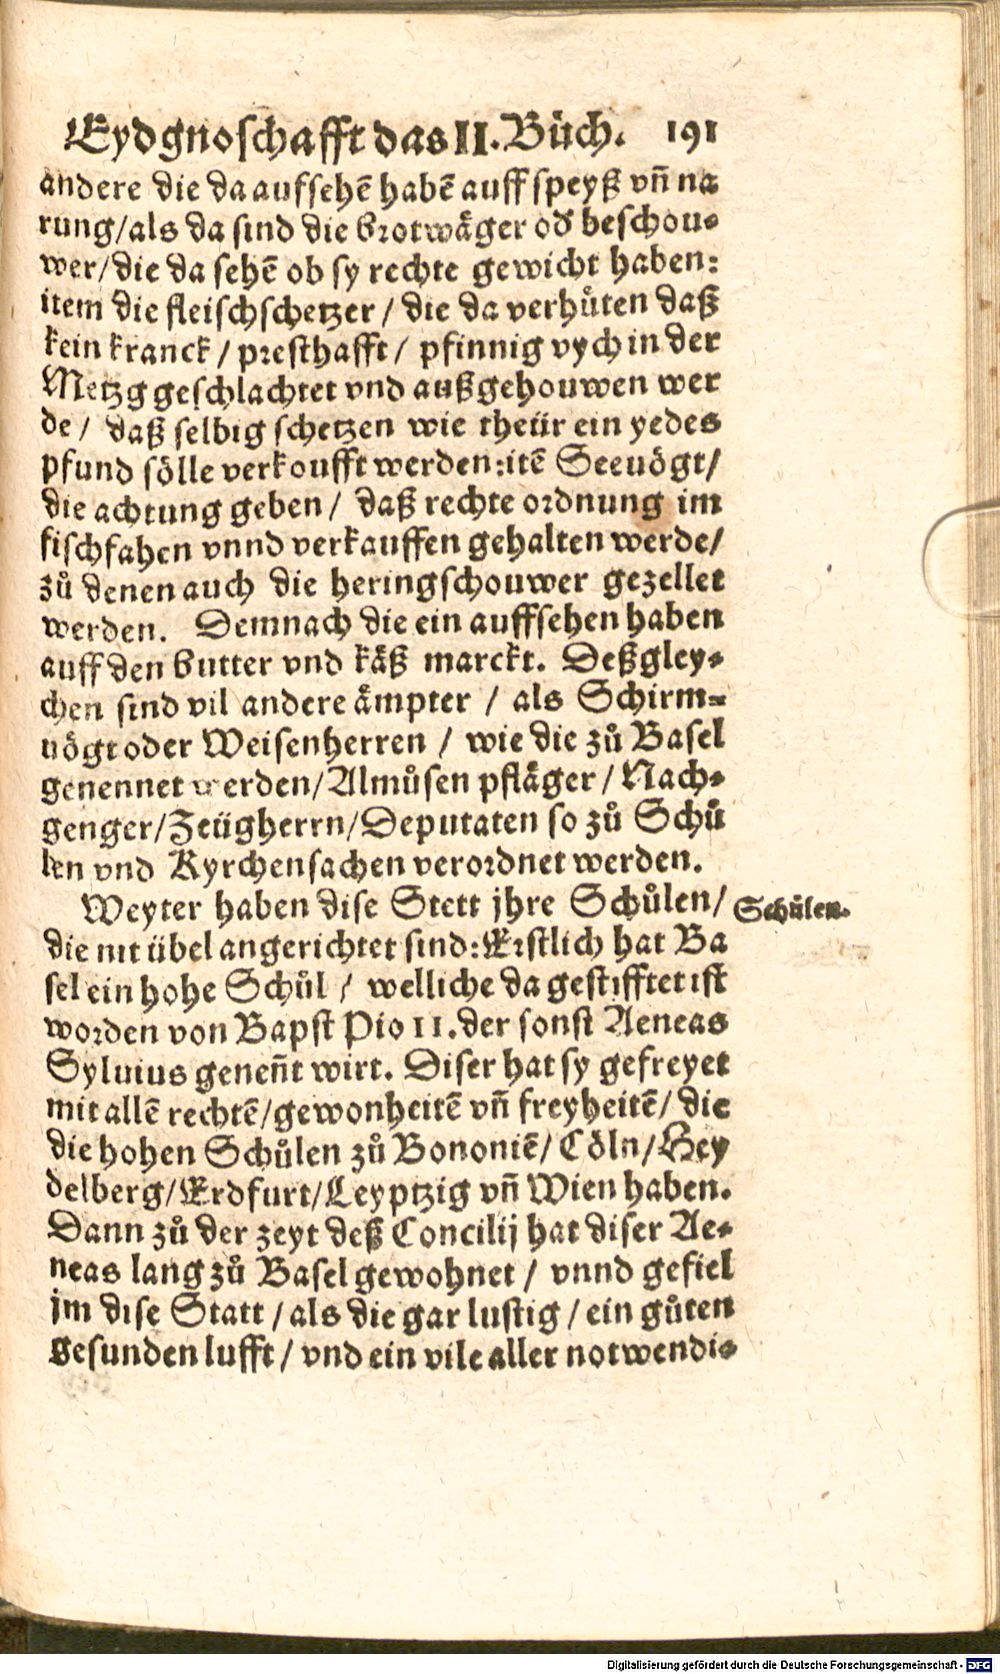 Eydgnoschafft das II. Bůch. 191
andere die da aufsehē habē auff speyß vñ na
rung/als da sind die brotwäger od beschou-
wer/die da sehē ob sy rechte gewicht haben:
item die fleischschetzer / die da verhüten daß
kein kranck / presthafft / pfinnig vych in der
Metzg geschlachtet vnd außgehouwen wer
de / daß selbig schetzen wie theür ein yedes
pfund sölle verkoufft werden: itē Seeuögt/
die achtung geben / daß rechte ordnung im
fischfahen vnnd verkauffen gehalten werde/
zů denen auch die heringschouwer gezellet
werden. Demnach die ein auffsehen haben
auff den butter vnd käß marckt. Deßgley-
chen sind vil andere ämpter / als Schirm-
uögt oder Weisenherren / wie die zů Basel
genennet werden/Almůsen pfläger / Nach-
genger/Zeügherrn/Deputaten so zů Schů
len vnd Kyrchensachen verordnet werden.
Weyter haben dise Stett jhre Schůlen/
Schůlen.
die nit übel angerichtet sind: Erstlich hat Ba
sel ein hohe Schůl / welliche da gestifftet ist
worden von Bapst Pio II. der sonst Aeneas
Syluius geneñt wirt. Diser hat sy gefreyet
mit allē rechtē/gewonheitē vñ freyheitē/ die
die hohen Schůlen zů Bononiē/ Cöln/Hey
delberg/Erdfurt/Leyptzig vñ Wien haben.
Dann zů der zeyt deß Concilij hat diser Ae-
neas lang zů Basel gewohnet / vnnd gefiel
jm dise Statt / als die gar lustig / ein gůten
gesunden lufft / vnd ein vile aller notwendi-
Digitalisierung gefördert durch die Deutsche Forschungsgemeinschaft - DFG